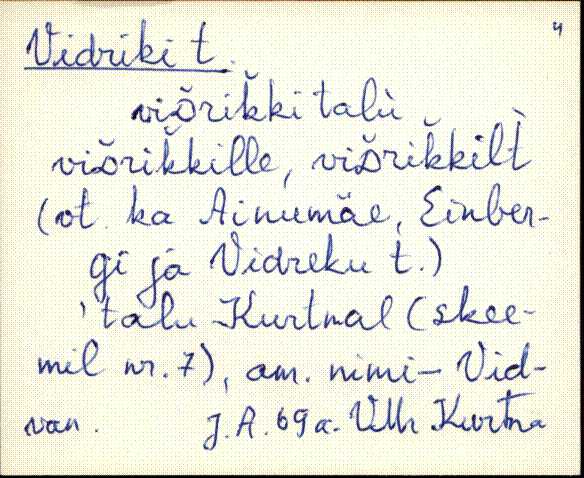 4
Vidriki t.
viδrik̆ki talù
viδrik̆kille, viδrik̆kil̀t
(vt. ka Ainumäe, Einber-
gi ja Vidreku t.)
'talu Kurtnal (skee-
mil nr. 7), am. nimi – Vid-
van. J.A. 69 a.
Kurtna